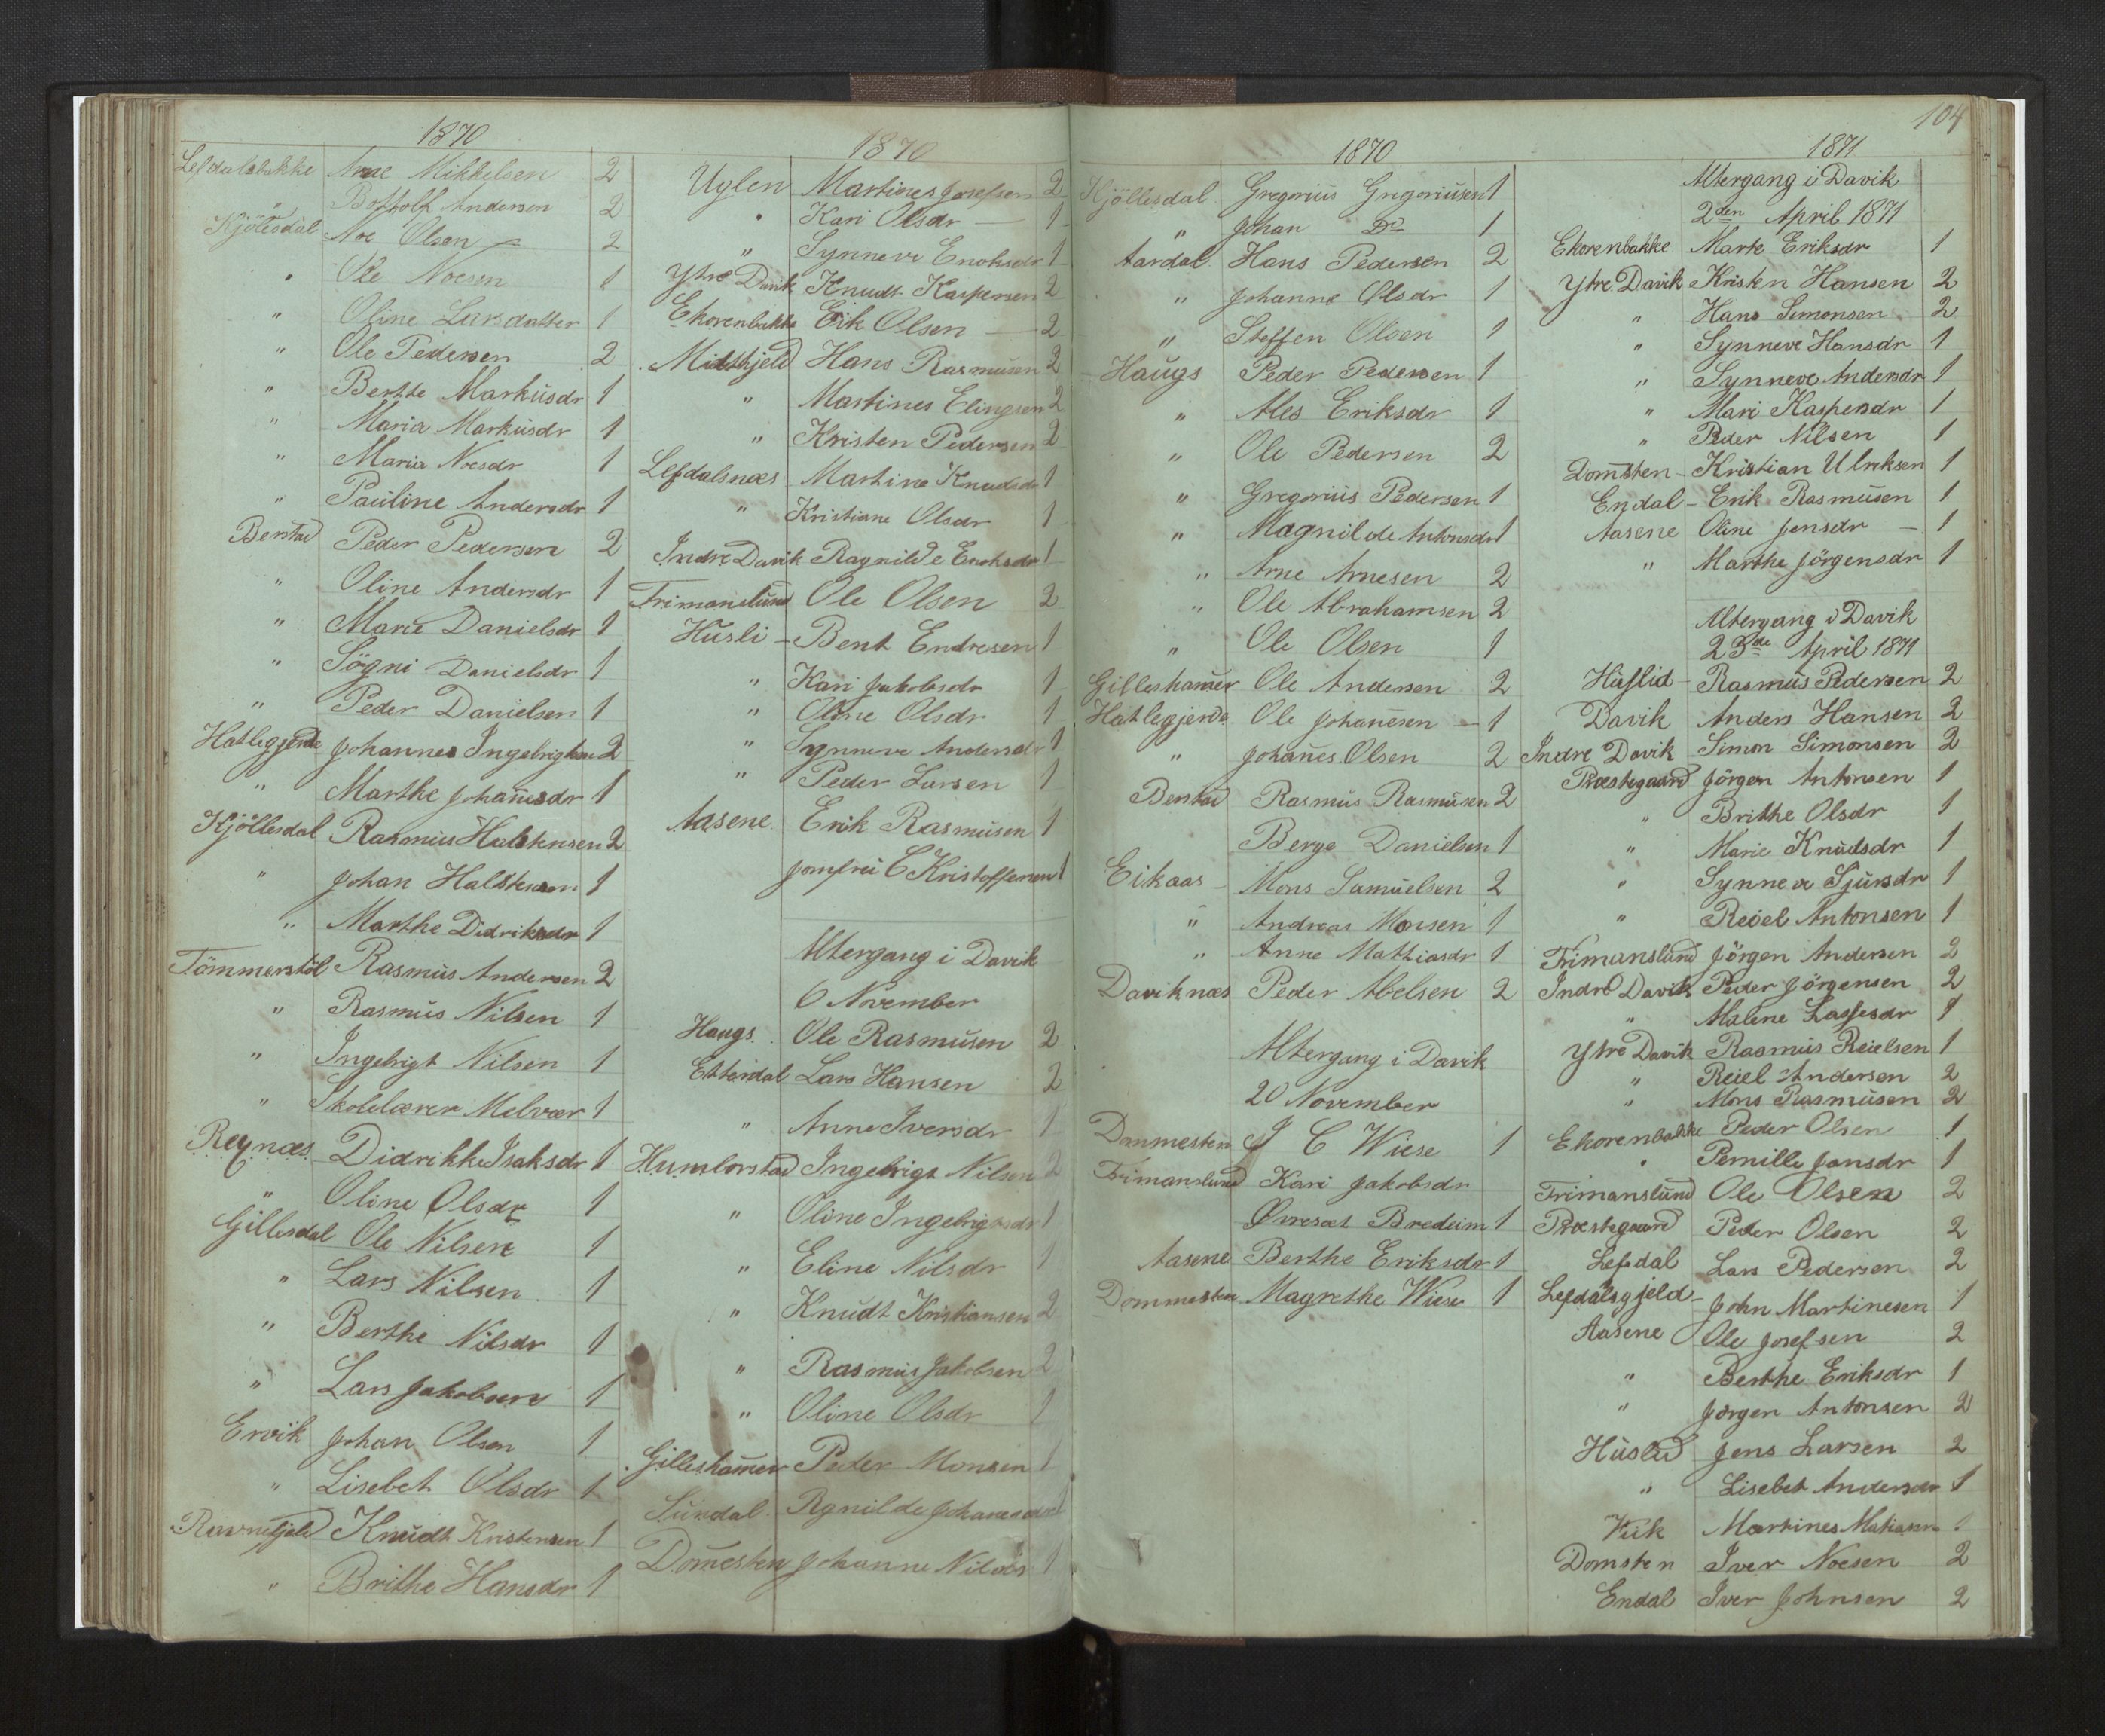 1870
Lefdalsbakke Arne Mikkelsen 2
" Bottolf Andersen 2
Kjölesdal Noe Olsen 2
" Ole Noesen 1
" Oline Larsdatter 1
" Ole Pedersen 2
" Berthe Markusdr 1
" Maria Markusdr 1
" Maria Noesdr 1
" Pauline Andersdr 1
Berstad Peder Pedersen 2
" Oline Andersdr 1
" Marie Danielsdr 1
" Sögni Danielsdr 1
" Peder Danielsen 1
Hatlegjerde Johannes Ingebrigtsen 2
" Marthe Johannesdr 1
Kjöllesdal Rasmus Halstensen 2
" Johan Halstensen 1
" Marthe Didriksdr 1
Tömmerstöl Rasmus Andersen 2
" Rasmus Nilsen 1
" Ingebrigt Nilsen 1
" Skolelærer Melvær 1
Reynæs Didrikke Isaksdr 1
" Oline Olsdr 1
Gillesdal Ole Nilsen 1
" Lars Nilsen 1
" Berthe Nilsdr 1
" Lars Jakobsen 1
Ervik Johan Olsen 1
" Lisebet Olsdr 1
Ravnefjeld Knudt Kristensen 1
" Brithe Hansdr 1
1870
Uglen Martines Josefsen 2
" Kari Olsdr — 1
" Synneve Enoksdr 1
Ytre Davik Knudt Kaspersen 2
Ekorenbakke Erik Olsen — 2
Midthjeld Hans Rasmusen 2
" Martines Elingsen 2
" Kristen Pedersen 2
Lefdalsnæs Martine Knudsdr 1
" Kristiane Olsdr 1
Indre Davik Ragnilde Enoksdr 1
Frimanslund Ole Olsen 2
Husli - Bent Endresen 1
" Kari Jakobsdr 1
" Oline Olsdr 1
" Synneve Andersdr 1
" Peder Larsen 1
Aasene Erik Rasmusen 1
Jomfru C Kristoffersen 1
Altergang i Davik
6 November
Haugs Ole Rasmusen 2
Endal Lars Hansen 2
" Anne Iversdr 1
Humborstad Ingebrigt Nilsen 2
" Oline Ingebrigtsdr 1
" Eline Nilsdr 1
" Knudt Kristiansen 2
" Rasmus Jakobsen 2
" Oline Olsdr 1
Gilleshamer Peder Monsen 1
Sundal Rgnilde Johanesdr 1
Domesten Johanne Nilsdr 1
1870
Kjöllesdal Gregorius Gregoriusen 1
" Johan Do 1
Aardal Hans Pedersen 2
" Johanne Olsdr 1
" Steffen Olsen 1
Haugs Peder Pedersen 1
" Ales Eriksdr 1
" Ole Pedersen 2
" Gregorius Pedersen 1
" Magnilde Antonsdr 1
" Arne Arnesen 2
" Ole Abrahamsen 2
" Ole Olsen 1
Gilleshamer Ole Andersen 2
Hatlegjerde Ole Johanesen — 1
" Johanes Olsen 2
Berstad Rasmus Rasmusen 2
Berge Danielsen 1
Eikaas - Mons Samuelsen 2
" Andreas Monsen 1
" Anne Mathiasdr 1
Daviknæs Peder Abelsen 2
Altergang i Davik
20 November
Dommesten J C Wiese 1
Frimanslund Kari Jakobsdr
Ørresæt Bredeim 1
Aasene Berthe Eriksdr 1
Dommesten Magrethe Wiese 1
104
1871
Altergang i Davik
2den April 1871
Ekorenbakke Marte Eriksdr 1
Ytre Davik Kristen Hansen 2
" Hans Simonsen 2
" Synneve Hansdr 1
" Synneve Andersdr 1
" Mari Kaspersdr 1
" Peder Nilsen 1
Domsten - Kristian Ulriksen 1
Endal - Erik Rasmusen 1
Aasene Oline Jensdr — 1
" Marthe Jörgensdr 1
Altergang i Davik
23de April 1871
Huslid - Rasmus Pedersen 2
Davik Anders Hansen 2
Indre Davik Simon Simonsen 2
Præstegaard Jörgen Antonsen 1
" Brithe Olsdr 1
" Marie Knudsdr 1
" Synneve Sjursdr 1
" Reiel Antonsen 1
Frimanslund Jörgen Andersen 2
Indre Davik Peder Jörgensen 2
" Malene Lassesdr 1
Ytre Davik Rasmus Reielsen 1
" Reiel Andersen 2
" Mons Rasmusen 2
Ekorenbakke Peder Olsen 1
" Pernille Jonsdr 1
Frimanslund Ole Olsen 2
Præstegaard Peder Olsen 2
Lefdal Lars Pedersen 2
Lefdalsgjeld - John Martinesen 1
Aasene Ole Josefsen 2
" Berthe Eriksdr 1
" Jörgen Antonsen 2
Huslid Jens Larsen 2
" Lisebet Andersdr 1
Viik Martines Matiasen
Domsten Iver Noesen 2
Endal Iver Johnsen 2